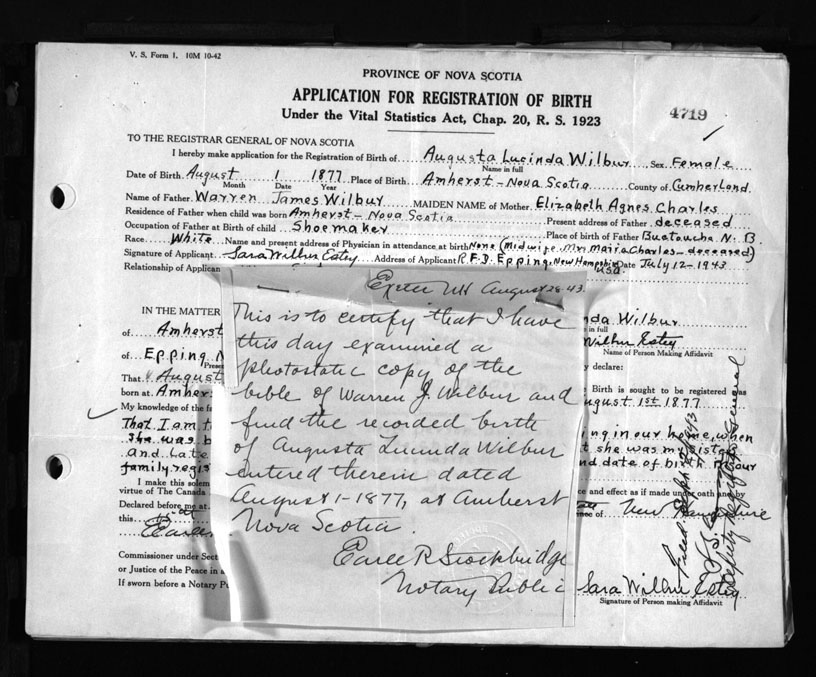 V. S. Form 1. 10M 10-42
PROVINCE OF NOVA SCOTIA
APPLICATION FOR REGISTRATION OF BIRTH
Under the Vital Statistics Act, Chap. 20, R. S. 1923
4719
TO THE REGISTRAR GENERAL OF NOVA SCOTIA
I hereby make application for the Registration of Birth of Augusta Lucinda Wilbur Sex Female
Name in full
Date of Birth August 1 1877 Place of Birth Amherst - Nova Scotia County of Cumberland
Month Date Year
Name of Father Warren James Wilbur MAIDEN NAME of Mother Elizabeth Agnes Charles
Residence of Father when child was born Amherst - Nova Scotia Present address of Father deceased
Occupation of Father at Birth of child Shoemaker Place of birth of Father Buctouche N. B.
Race White Name and present address of Physician in attendance at birth None (Midwife Mrs Maria Charles - deceased)
Signature of Applicant Sara Wilbur Estey Address of Applicant R.F.D. Epping, New Hampshire USA Date July 12 - 1943
Relationship of Applican
Exeter NH August 28-43.
This is to certify that I have
this day examined a
photostatic copy of the
bible of Warren J. Wilbur and
find the recorded birth
of Augusta Lucinda Wilbur
entered therein dated
August 1-1877, at Amherst
Nova Scotia.
Earle R Stockbridge
Notary Public
IN THE MATTER
nda Wilbur
in full
of Amherst
Wilbur Estey
Name of Person Making Affidavit
of Epping N
y declare:
That August
Birth is sought to be registered was
born at Amhers
ugust 1st 1877
My knowledge of the fa
That I am t
ing in our home, when
she was b
t she was my sister
and late
nd date of birth in our
family regis
I make this solem
ce and effect as if made under oath and by
virtue of The Canada
Declared before me at
nce of New Hampshire
this
Earle
Commissioner under Sect
or Justice of the Peace in a
If sworn before a Notary Pu
Sara Wilbur Estey
Signature of Person making Affidavit
Deputy Registrar General